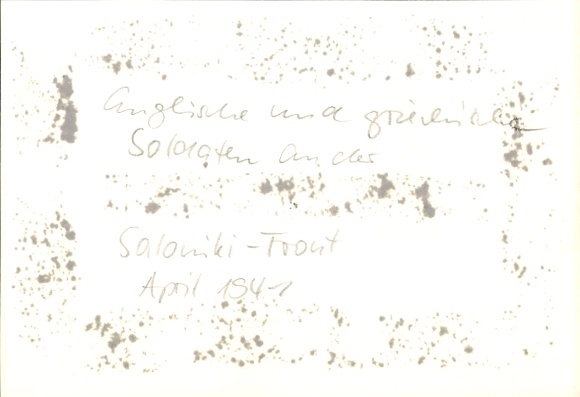 Englische und griechische
Soldaten an der
Saloniki-Front
April 1941